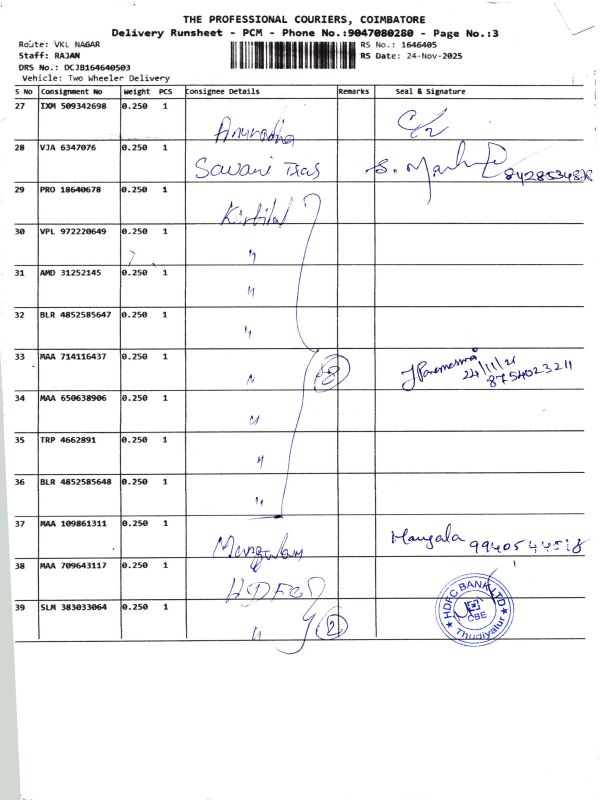 THE PROFESSIONAL COURIERS, COIMBATORE
Delivery Runsheet - PCM - Phone No.:9047080280 - Page No.:3
Route: VKL NAGAR RS No.: 1646405
Staff: RAJAN RS Date: 24-Nov-2025
DRS No.: DCJB164640503
Vehicle: Two Wheeler Delivery
S No Consignment No Weight PCS Consignee Details Remarks Seal & Signature
27 IXM 509342698 0.250 1 Anuradha
28 VJA 6347076 0.250 1 Sawani
29 PRO 18640678 0.250 1 Kirtilal
30 VPL 972220649 0.250 1 "
31 AMD 31252145 0.250 1 "
32 BLR 4852585647 0.250 1 "
33 MAA 714116437 0.250 1 " 8 24/11/21 8754023211
34 MAA 650638906 0.250 1 "
35 TRP 4662891 0.250 1 "
36 BLR 4852585648 0.250 1 "
37 MAA 109861311 0.250 1 Mangalam Mangala
38 MAA 709643117 0.250 1 HDFC
39 SLM 383033064 0.250 1 " 2 HDFC BANK LTD CBE Thudiyalur